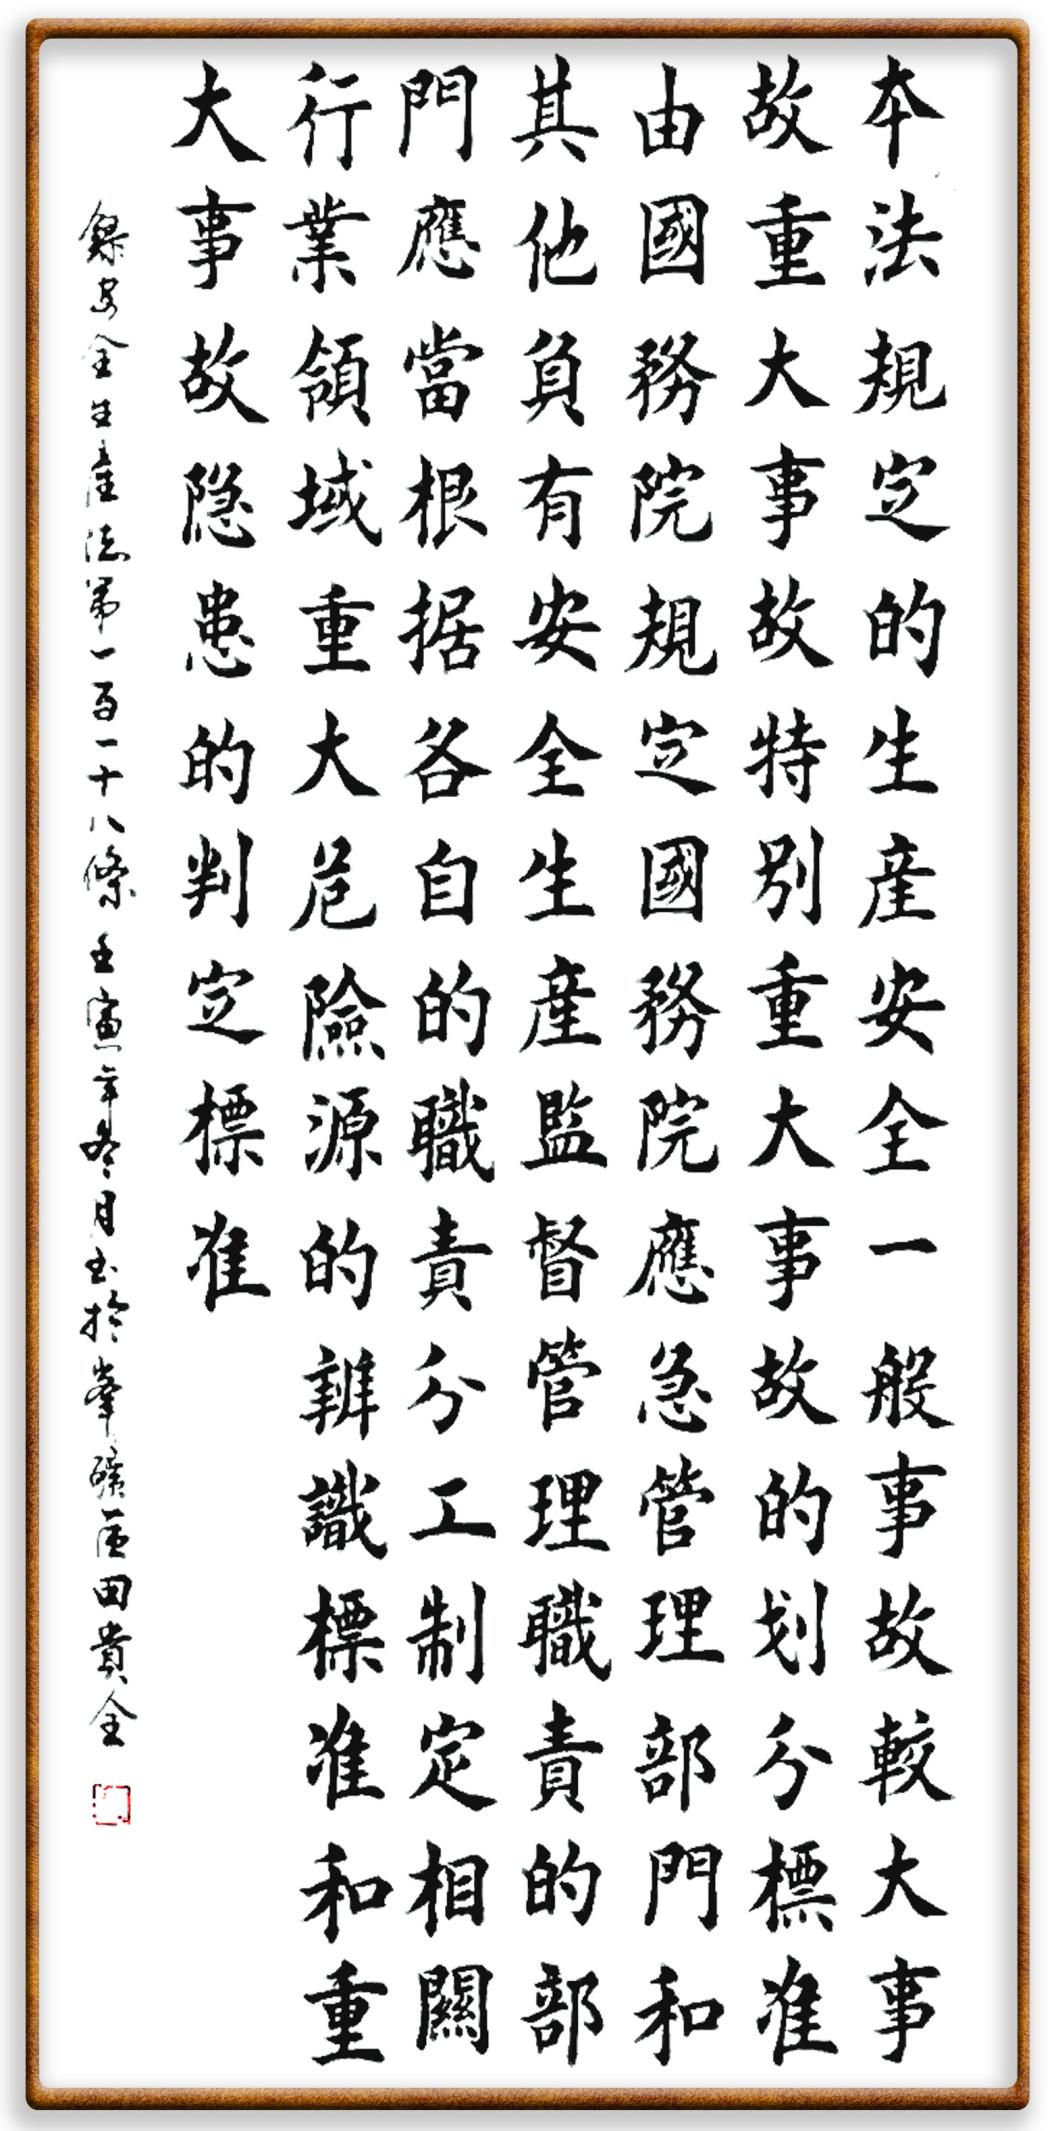 本法規定的生産安全一般事故較大事
故重大事故特别重大事故的划分標准
由國務院規定國務院應急管理部門和
其他負有安全生産監督管理職責的部
門應當根据各自的職責分工制定相關
行業領域重大危險源的辨識標准和重
大事故隐患的判定標准
錄安全生産法第一百一十八條 壬寅年冬月书於峯礦區田貴全